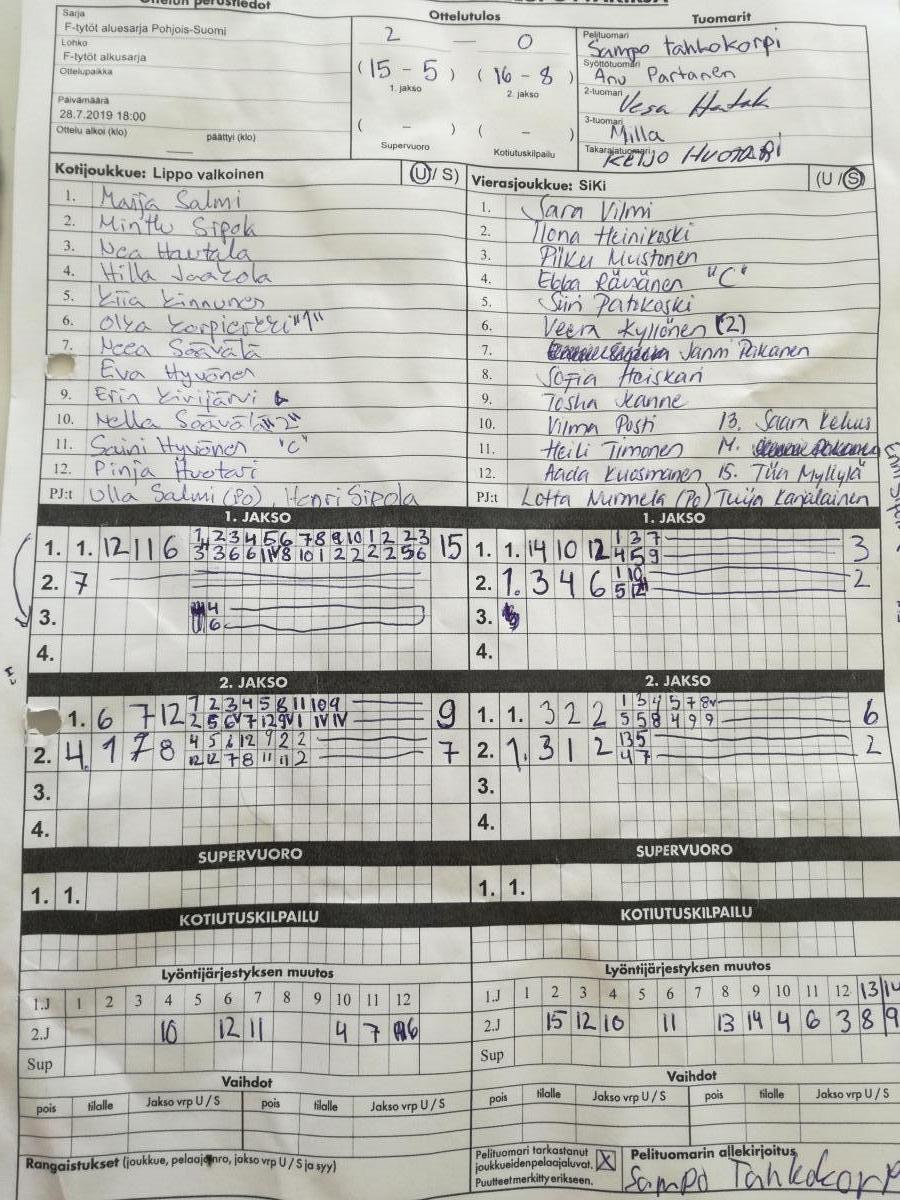 Ottelun perustiedot
Sarja
F-tytöt aluesarja Pohjois-Suomi
Lohko
F-tytöt alkusarja
Ottelupaikka
Päivämäärä
28.7.2019 18:00
Ottelu alkoi (klo) päättyi (klo)
Ottelutulos
2 — 0
(15 - 5) (16 - 8)
1. jakso 2. jakso
( - ) ( - )
Supervuoro Kotiutuskilpailu
Tuomarit
Pelituomari
Sampo Tahkokorpi
Syöttötuomari
Anu Partanen
2-tuomari
Vesa
3-tuomari
Milla
Takarajatuomari
Keijo Huotari
Kotijoukkue: Lippo valkoinen (U / S)
1. Maija Salmi
2. Minttu Sipola
3. Nea Hautala
4. Hilla Jaakola
5. Kiia Kinnunen
6. "1"
7. Neea Säävälä
Eva Hyvönen
9. Erin Kivijärvi
10. Nella Säävälä "2"
11. Saini Hyvönen "C"
12. Pinja Huotari
PJ:t Ulla Salmi (Po), Henri Sipola
Vierasjoukkue: SiKi (U / S)
1. Sara Vilmi
2. Ilona Heinikoski
3. Pilku Mustonen
4. Ebba Räisänen "C"
5. Siiri Patokoski
6. Veera Kyllönen (2)
7. Janni Pakanen
8. Sofia Heiskari
9. Tosha Jeanne
10. Vilma Posti 13. Saara Kehus
11. Heili Timonen 14.
12. Aada Kuosmanen 15. Tiia Myllylä
PJ:t Lotta Nurmela (Po) Tuija Karjalainen
1. JAKSO
1. 1. 12 11 6 15
2. 7
3. 4
6
4.
1. JAKSO
1. 1. 14 10 12 1 3 7 3
4 5 9
2. 1. 3 4 6 1 10 2
5 12
3.
4.
2. JAKSO
1. 6 7 12 9
2. 4. 1 7 8 4 5 6 12 9 2 2 7
12 12 7 8 11 11 2
3.
4.
2. JAKSO
1. 1. 3 2 2 6
2. 1. 3 1 2 1 3 5 2
4 7
3.
4.
SUPERVUORO
1. 1.
SUPERVUORO
1. 1.
KOTIUTUSKILPAILU
KOTIUTUSKILPAILU
Lyöntijärjestyksen muutos
1.J 1 2 3 4 5 6 7 8 9 10 11 12
2.J 10 12 11 4 7 6
Sup
Lyöntijärjestyksen muutos
1.J 1 2 3 4 5 6 7 8 9 10 11 12 13 14
2.J 15 12 10 11 13 14 4 6 3 8 9
Sup
Vaihdot
pois tilalle Jakso vrp U / S pois tilalle Jakso vrp U / S
Vaihdot
pois tilalle Jakso vrp U / S pois tilalle Jakso vrp U / S
Rangaistukset (joukkue, pelaajanro, jakso vrp U / S ja syy)
Pelituomari tarkastanut
joukkueiden pelaajaluvat. X
Puutteet merkitty erikseen.
Pelituomarin allekirjoitus
Sampo Tahkokorp